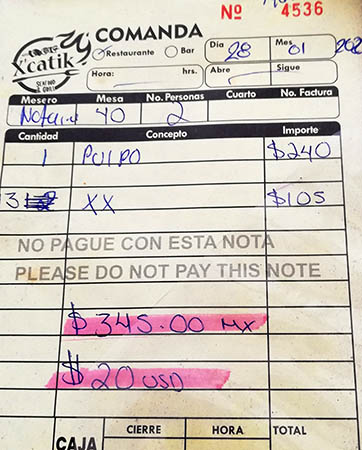 Nº 4536
COMANDA
Xcatik
Restaurante Bar
Día 28 Mes 01 202
Hora: hrs. Abre Sigue
Mesero Mesa No. Personas Cuarto No. Factura
40 2
Cantidad Concepto Importe
1 PULPO $240
3 XX $105
NO PAGUE CON ESTA NOTA
PLEASE DO NOT PAY THIS NOTE
$345.00 MX
$20 USD
CIERRE HORA TOTAL
CAJA